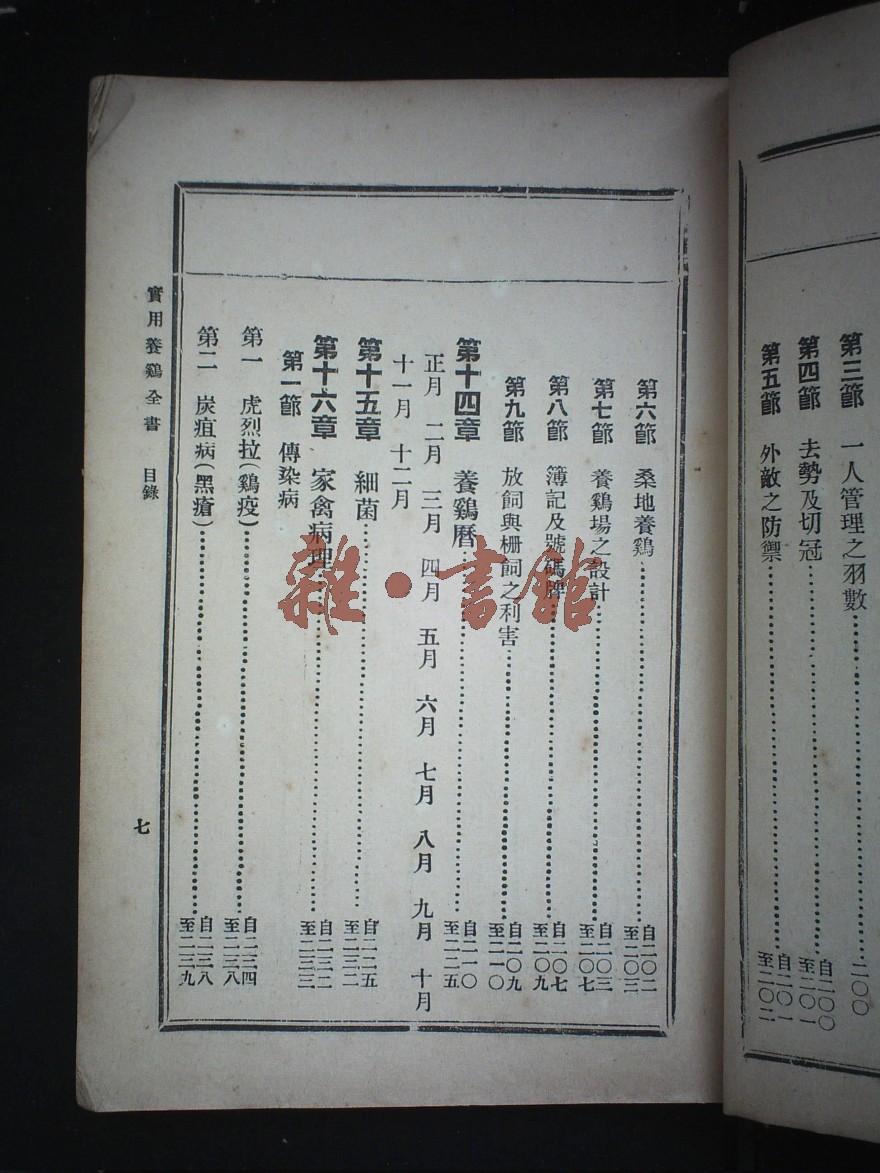 第三節　一人管理之羽數……二〇〇
第四節　去勢及切冠……自二〇〇至二〇一
第五節　外敵之防禦……自二〇一至二〇二
第六節　桑地養鷄……自二〇二至二〇三
第七節　養鷄場之設計……自二〇三至二〇七
第八節　簿記及號碼牌……自二〇七至二〇九
第九節　放飼與柵飼之利害……自二〇九至二一〇
第十四章　養鷄曆……自二一〇至二二五
正月　二月　三月　四月　五月　六月　七月　八月　九月　十月
十一月　十二月
第十五章　細菌……自二二五至二三二
第十六章　家禽病理……自二三二至二三三
第一節　傳染病
第一　虎烈拉(鷄疫)……自二三四至二三八
第二　炭疽病(黑瘡)……自二三八至二三九
實用養鷄全書　目錄
七
雜·書館